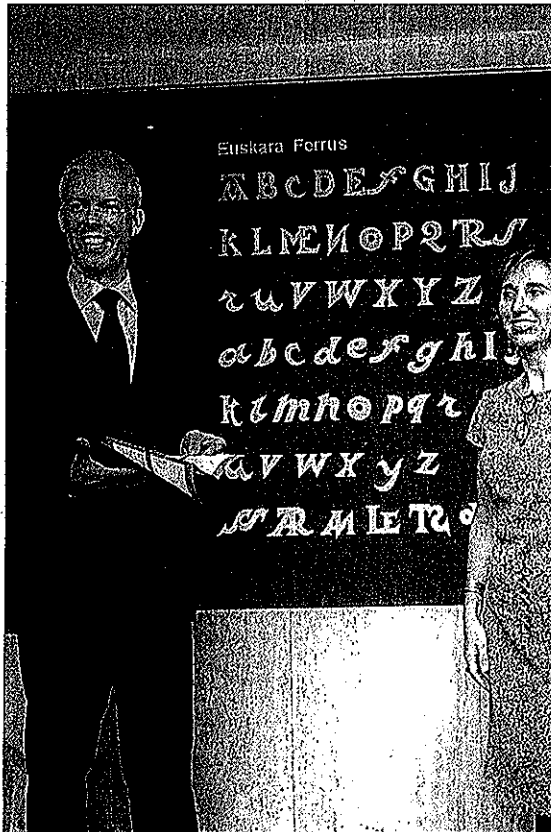 Euskara Ferrus
A B C D E F G H I J
K L M E N O P Q R S
r u V W X Y Z
a b c d e f g h I J
k l m n o p q r
u v w x y z